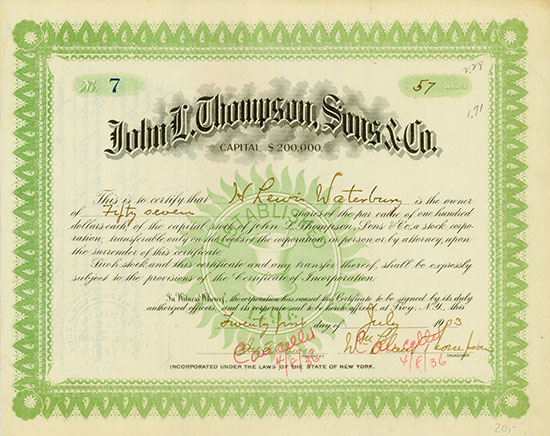 No. 7
57 Shares
2.28
1.71
John L. Thompson, Sons & Co.
CAPITAL $200,000.
ESTABLIS
This is to certify that H Lewis Waterbury is the owner
of Fifty seven shares of the par value of one hundred
dollars each, of the capital stock of John L. Thompson, Sons & Co., a stock corpo-
ration, transferable only on the books of the corporation, in person or by attorney, upon
the surrender of this certificate.
Such stock and this certificate and any transfer thereof, shall be expressly
subject to the provisions of the Certificate of Incorporation.
In Witness Whereof, the corporation has caused this Certificate to be signed by its duly
authorized officers, and its corporate seal to be hereto affixed, at Troy, N.Y., this
Twenty first day of July 1903
Cancelled
4/8/36
Cancelled
4/8/36
Thompson
TREASURER
INCORPORATED UNDER THE LAWS OF THE STATE OF NEW YORK.
20,-